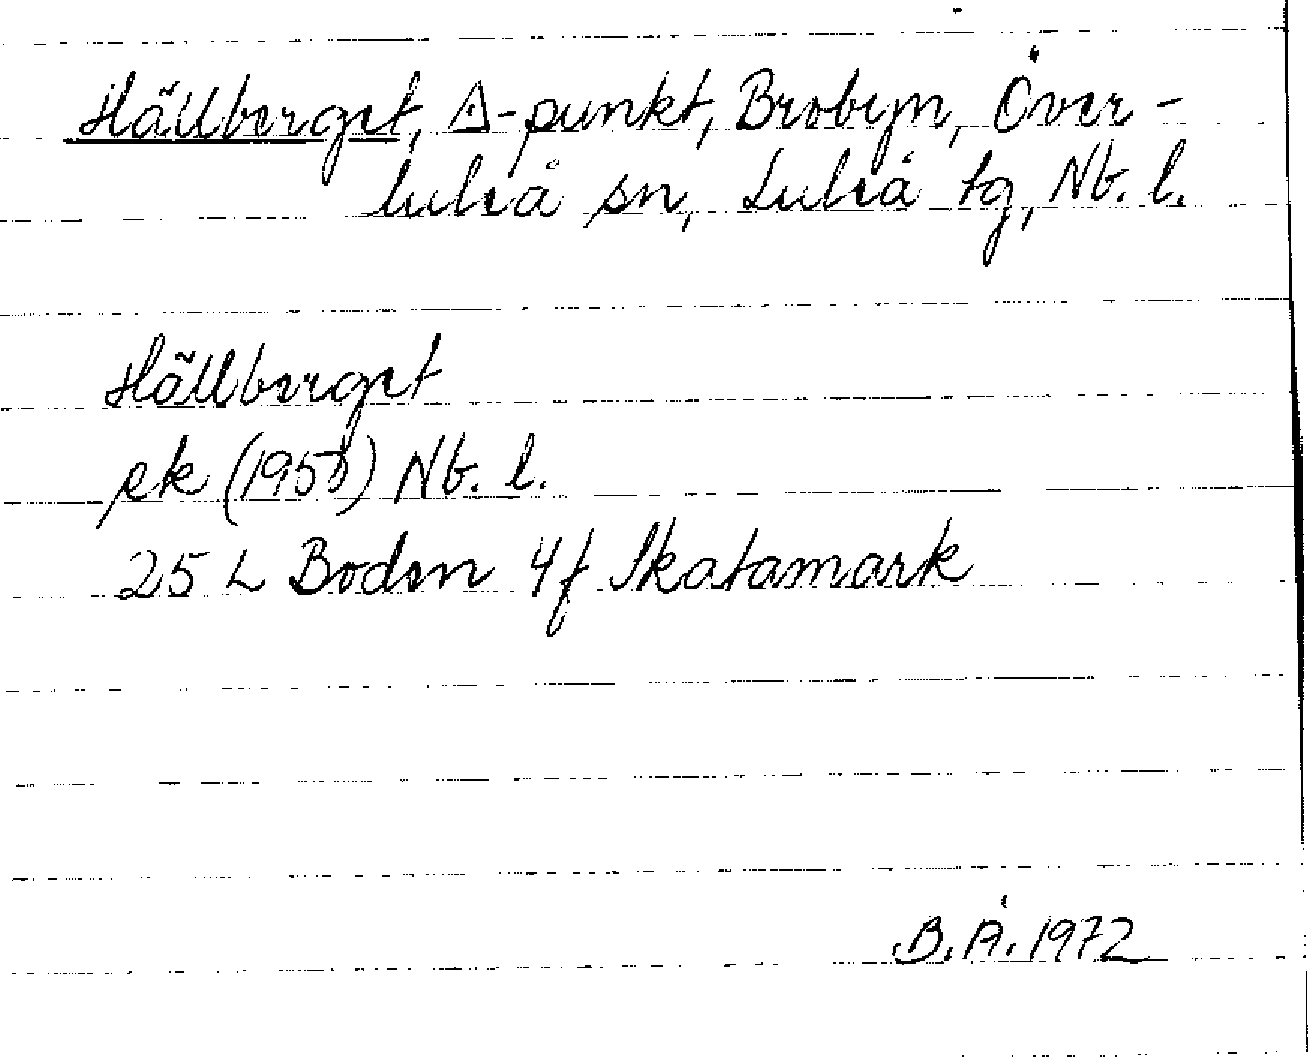 Hällberget, Δ-punkt, Brobyn, Över-
luleå sn, Luleå tg, Nb. l.
Hällberget
ek (1953) Nb. l.
25 L Boden 4f Skatamark
B. Å. 1972